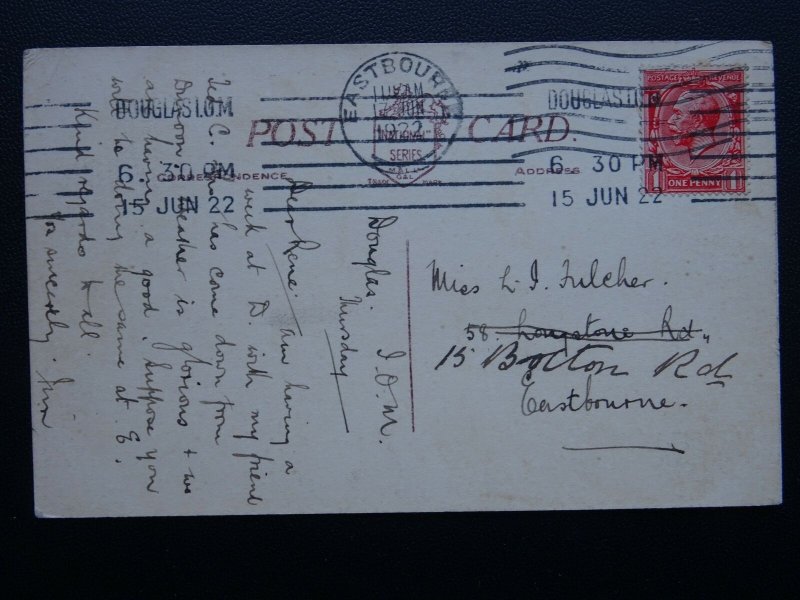 POST CARD.
CORRESPONDENCE
ADDRESS
NATIONAL
SERIES
TRADE MARK
EASTBOURNE
JUN
1922
DOUGLAS I.O.M
6. 30 PM
15 JUN 22
DOUGLAS I.O.M
6 30 PM
15 JUN 22
POSTAGE REVENUE
ONE PENNY
Douglas. I.O.M.
Thursday
Dear Rene. Am having a
week at D. with my friend
C. who has come down from
weather is glorious & we
are having a good. Suppose you
will be doing the same at E.
Kind regards to all.
Yrs sincerely.
Miss L. I. Fulcher.
58. Longstone Rd.,
15 Bolton Rd
Eastbourne.